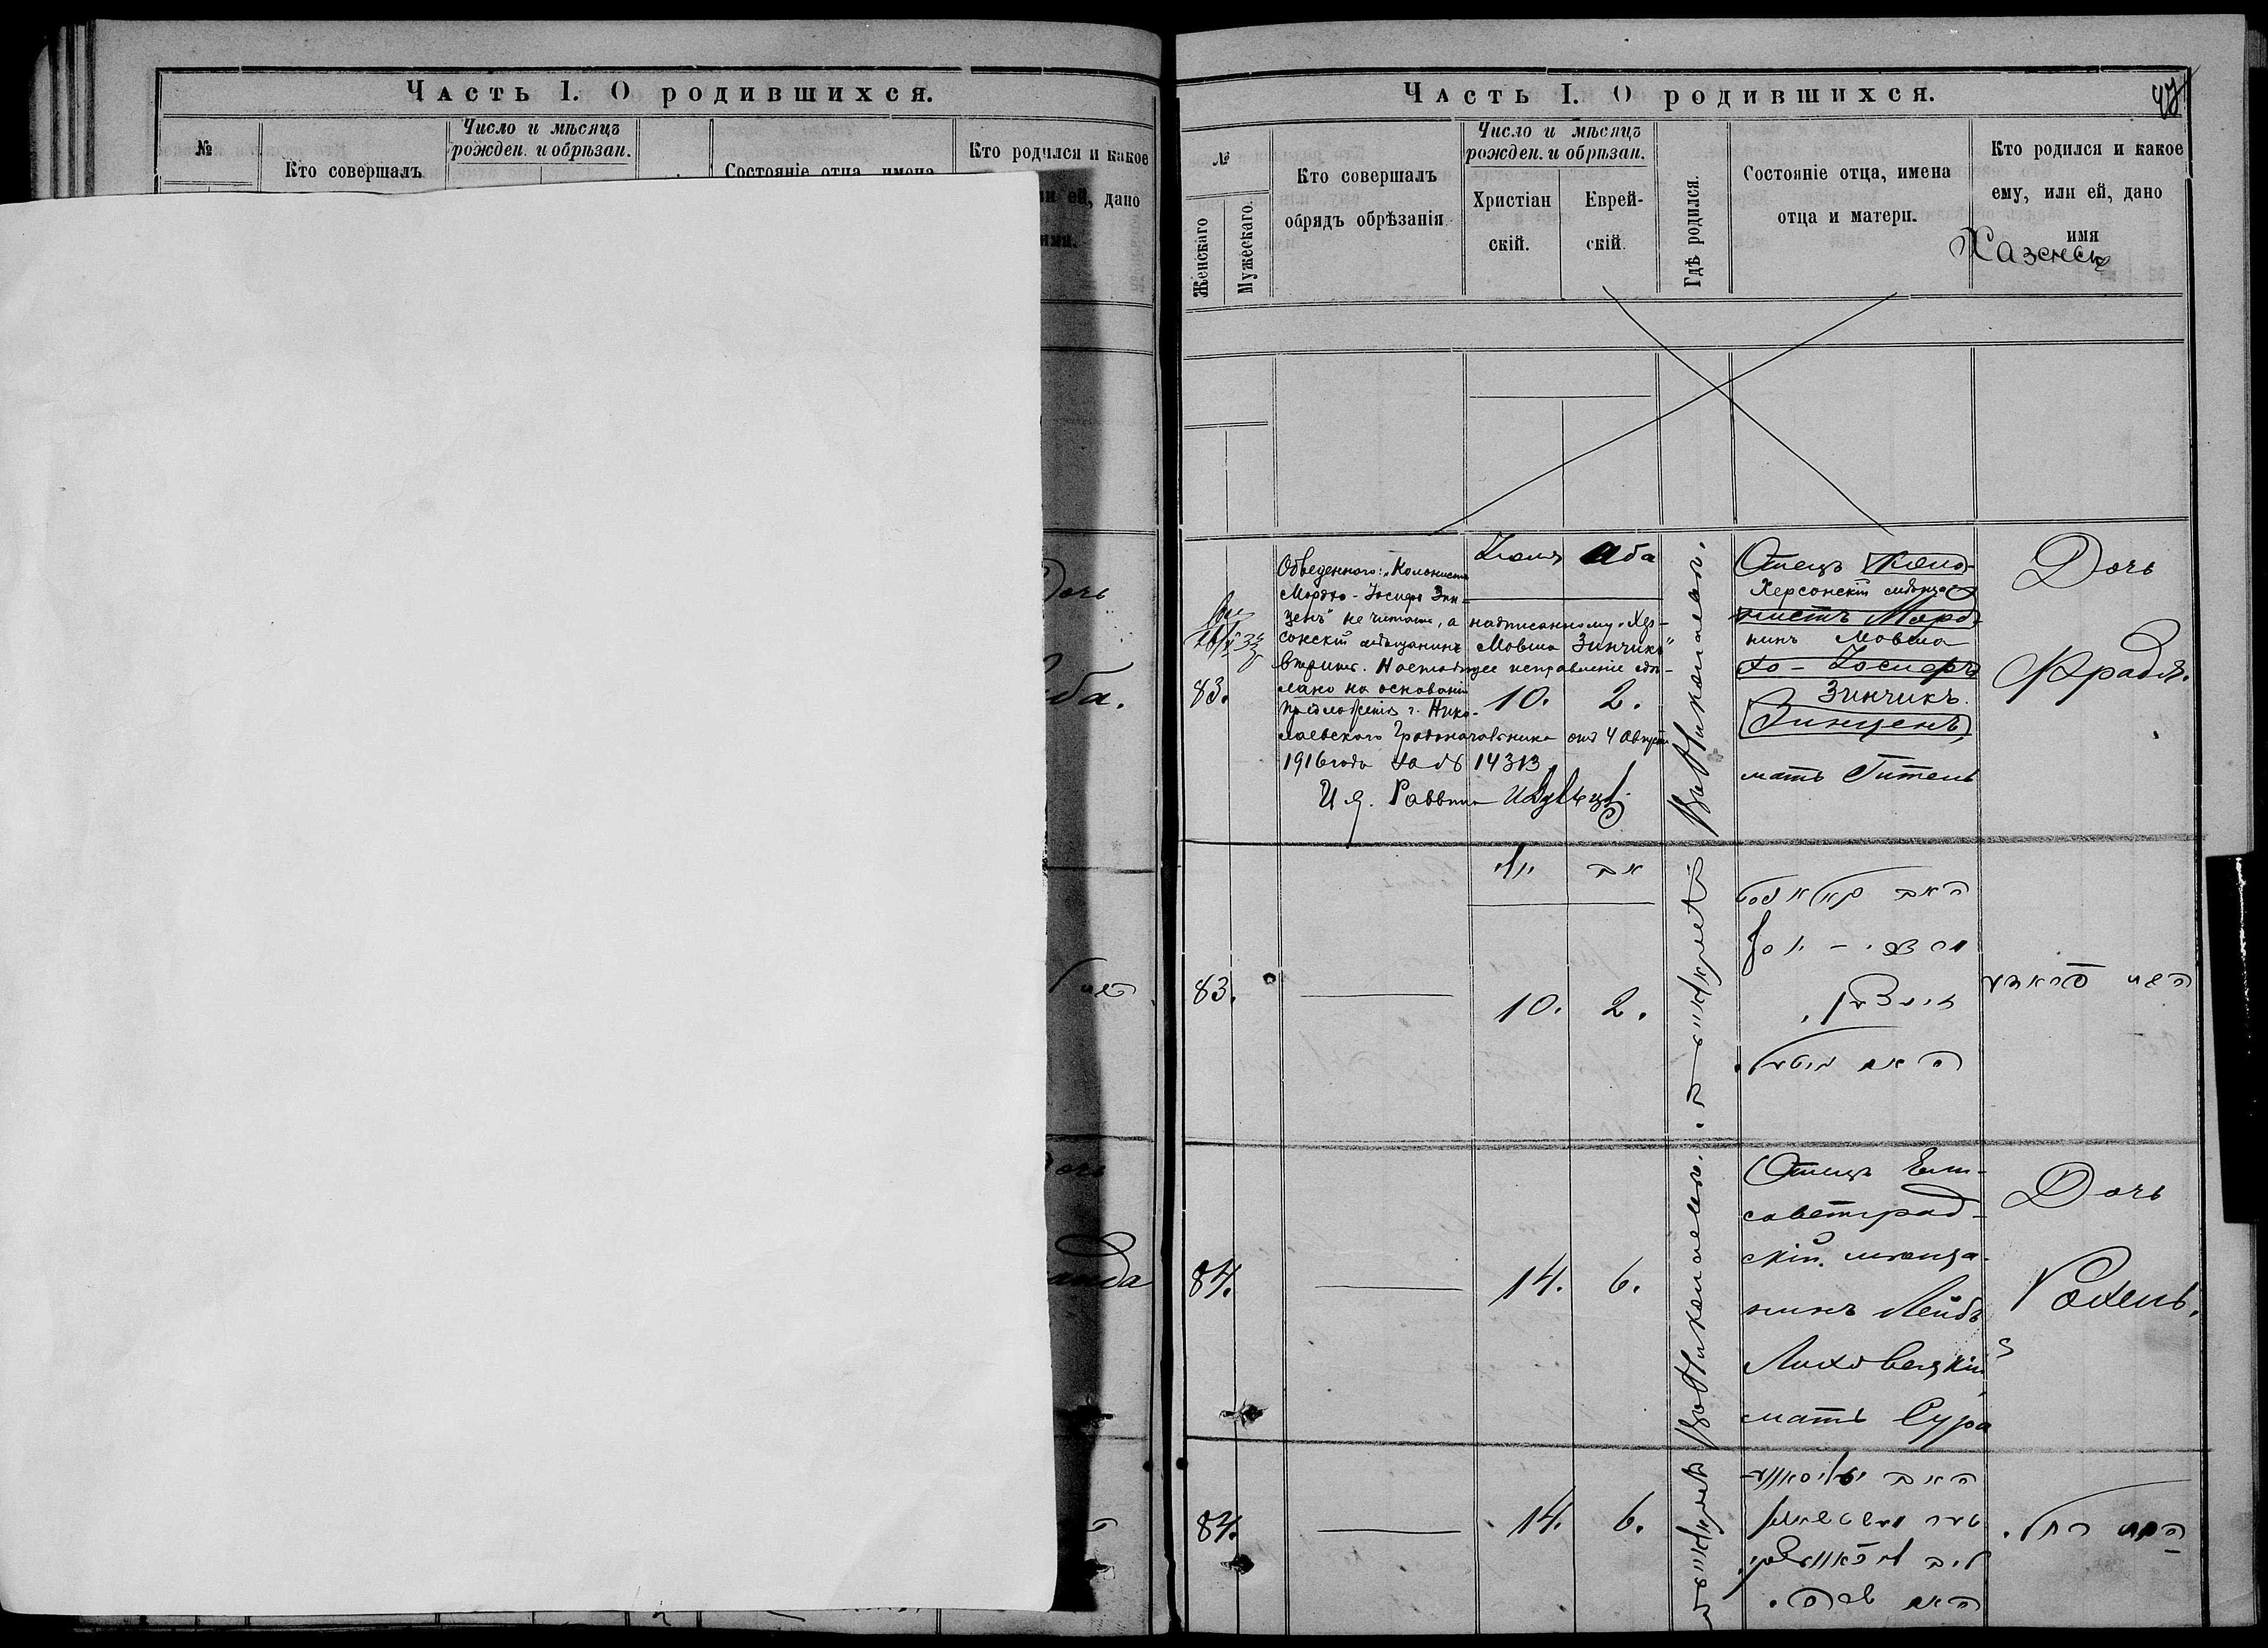 Часть I. О родившихся.
№
Кто совершалъ
Число и мѣсяцъ
рожден. и обрѣзан.
Состояніе отца, имена
Кто родился и какое
ей, дано
Дочь
ба.
Часть I. О родившихся.
№
Женскаго
Мужескаго.
Кто совершалъ
обрядъ обрѣзанія.
Число и мѣсяцъ
рожден. и обрѣзан.
Христіан
скій.
Еврей-
скій.
Гдѣ родился.
Состояніе отца, имена
отца и матери.
Кто родился и какое
ему, или ей, дано
имя
83.
Обведенного: „Колонистъ
Мордхо-Іосифъ Зин-
ценъ" не читать, а надписанному „Хер-
сонскій мѣщанинъ Мовша Зинчикъ"
вѣрить. Настоящее исправленіе сдѣ-
лано на основаніи
предложенія г. Нико-
лаевскаго Градоначальника отъ 4 Августа
1916 года за № 14313
И. д. Раввина
Іюля
10.
Аба
2.
Въ Николаевѣ.
Отецъ Коло-
Херсонскій мѣща-
нистъ Морд-
нинъ Мовша
хо-Іосифъ
Зинчикъ.
Зинценъ,
мать Гитель
Дочь
Фрадя.
83.
יולי
10.
אב
2.
האב קאלאניסט
מרדכי - יוסף
זינצען,
האם גיטעל.
השם פראדיע
84.
14.
6.
Въ Николаевѣ.
Отецъ Ели-
саветград-
скій мѣща-
нинъ Лейбъ
Лиховецкій
мать Сура
Дочь
Рохель.
84.
14.
6.
האם שרה.
השם רחל.